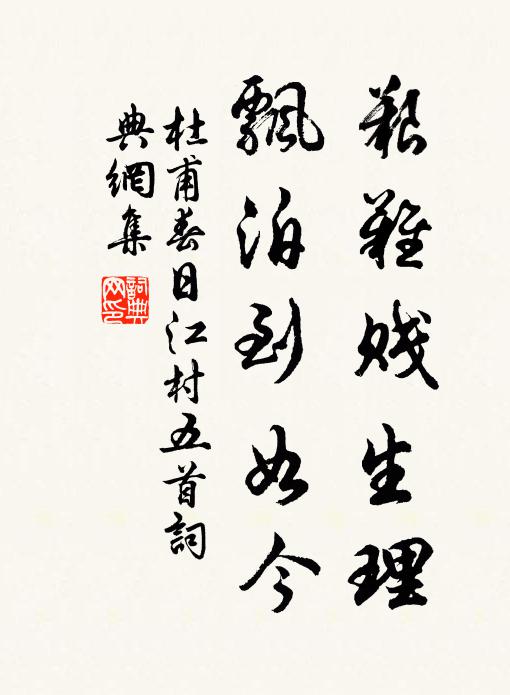 艱難賤生理
飄泊到如今
杜甫春日江村五首詞
典網集
詞典
网印